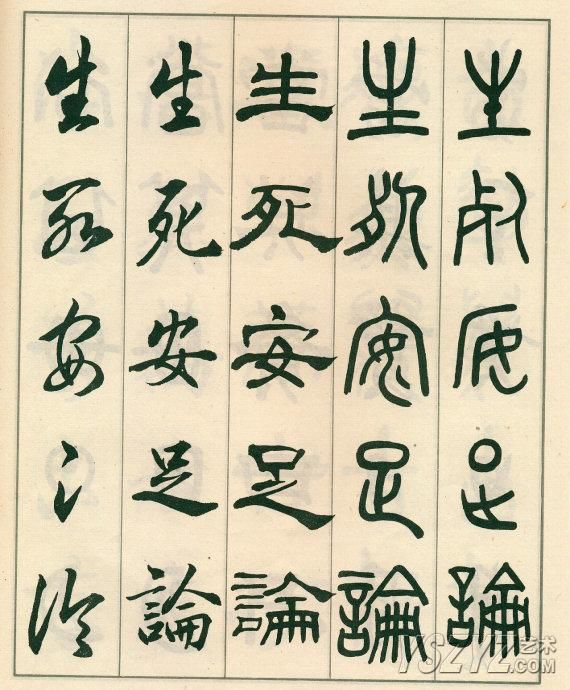 生死安足論
生死安足論
生死安足論
生死安足論
生死安足論
YSZYZ.com 艺术